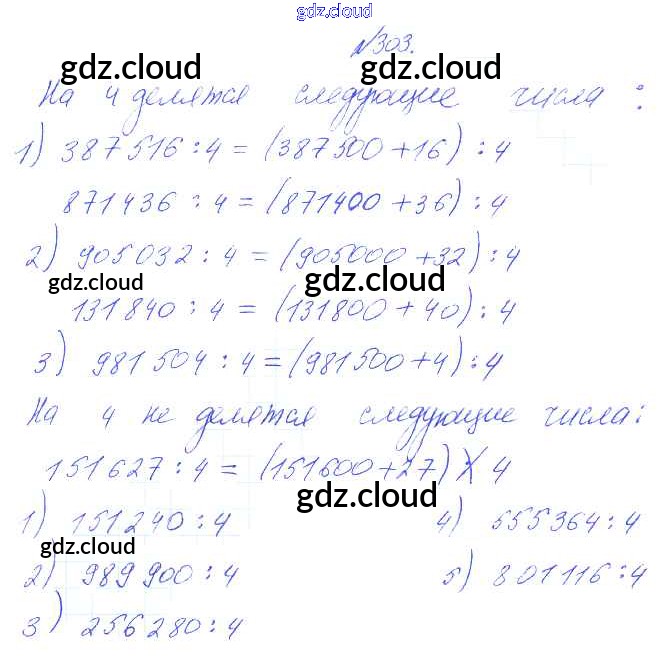 gdz.cloud
№303.
gdz.cloud gdz.cloud
На 4 делятся следующие числа:
1) 387516 : 4 = (387500 + 16) : 4
871436 : 4 = (871400 + 36) : 4
2) 905032 : 4 = (905000 + 32) : 4
gdz.cloud gdz.cloud
131840 : 4 = (131800 + 40) : 4
3) 981504 : 4 = (981500 + 4) : 4
На 4 не делятся следующие числа:
151627 : 4 = (151600 + 27) ⁒ 4
gdz.cloud
1) 151240 : 4 4) 555364 : 4
gdz.cloud
2) 989900 : 4 5) 801116 : 4
3) 256280 : 4